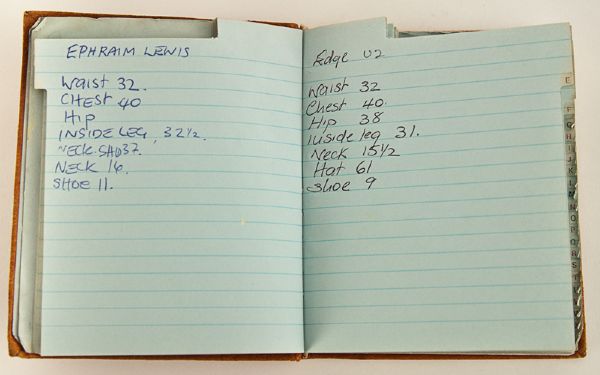 EPHRAIM LEWIS
Waist 32.
CHEST 40
Hip
INSIDE LEG, 32½.
NECK. SHO 37.
NECK 16.
SHOE 11.
Edge U2
Waist 32
Chest 40.
Hip 38
inside leg 31.
Neck 15½
Hat 61
Shoe 9
E
F
G
H
I
J
K
L
M
N
O
P
Q
R
S